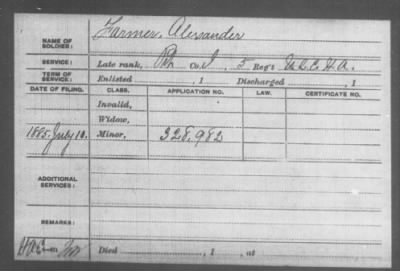 NAME OF SOLDIER: Farmer, Alexander
SERVICE: Late rank, Pvt Co. I, 5 Reg't U.S.C.H.A.
TERM OF SERVICE: Enlisted , 1 Discharged , 1
DATE OF FILING. CLASS. APPLICATION NO. LAW. CERTIFICATE NO.
Invalid,
Widow,
1885. July 10. Minor, 328,982
ADDITIONAL SERVICES:
REMARKS:
Died , 1 , at